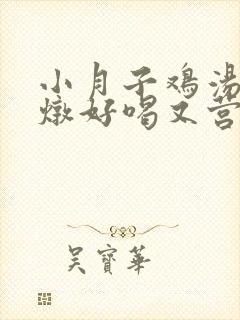 小月子鸡汤
燉好喝又营
吴寳華